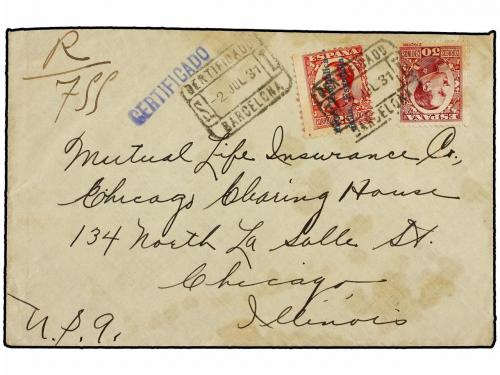 R
755
CERTIFICADO
CERTIFICADO
-2 JUL.31
BARCELONA
ESPAÑA
CERTIFICADO
JUL.31
BARCELONA
30
ESPAÑA
Mutual Life Insurance Co.,
Chicago Clearing House
134 North La Salle St.
Chicago
Illinois
U.S.A.